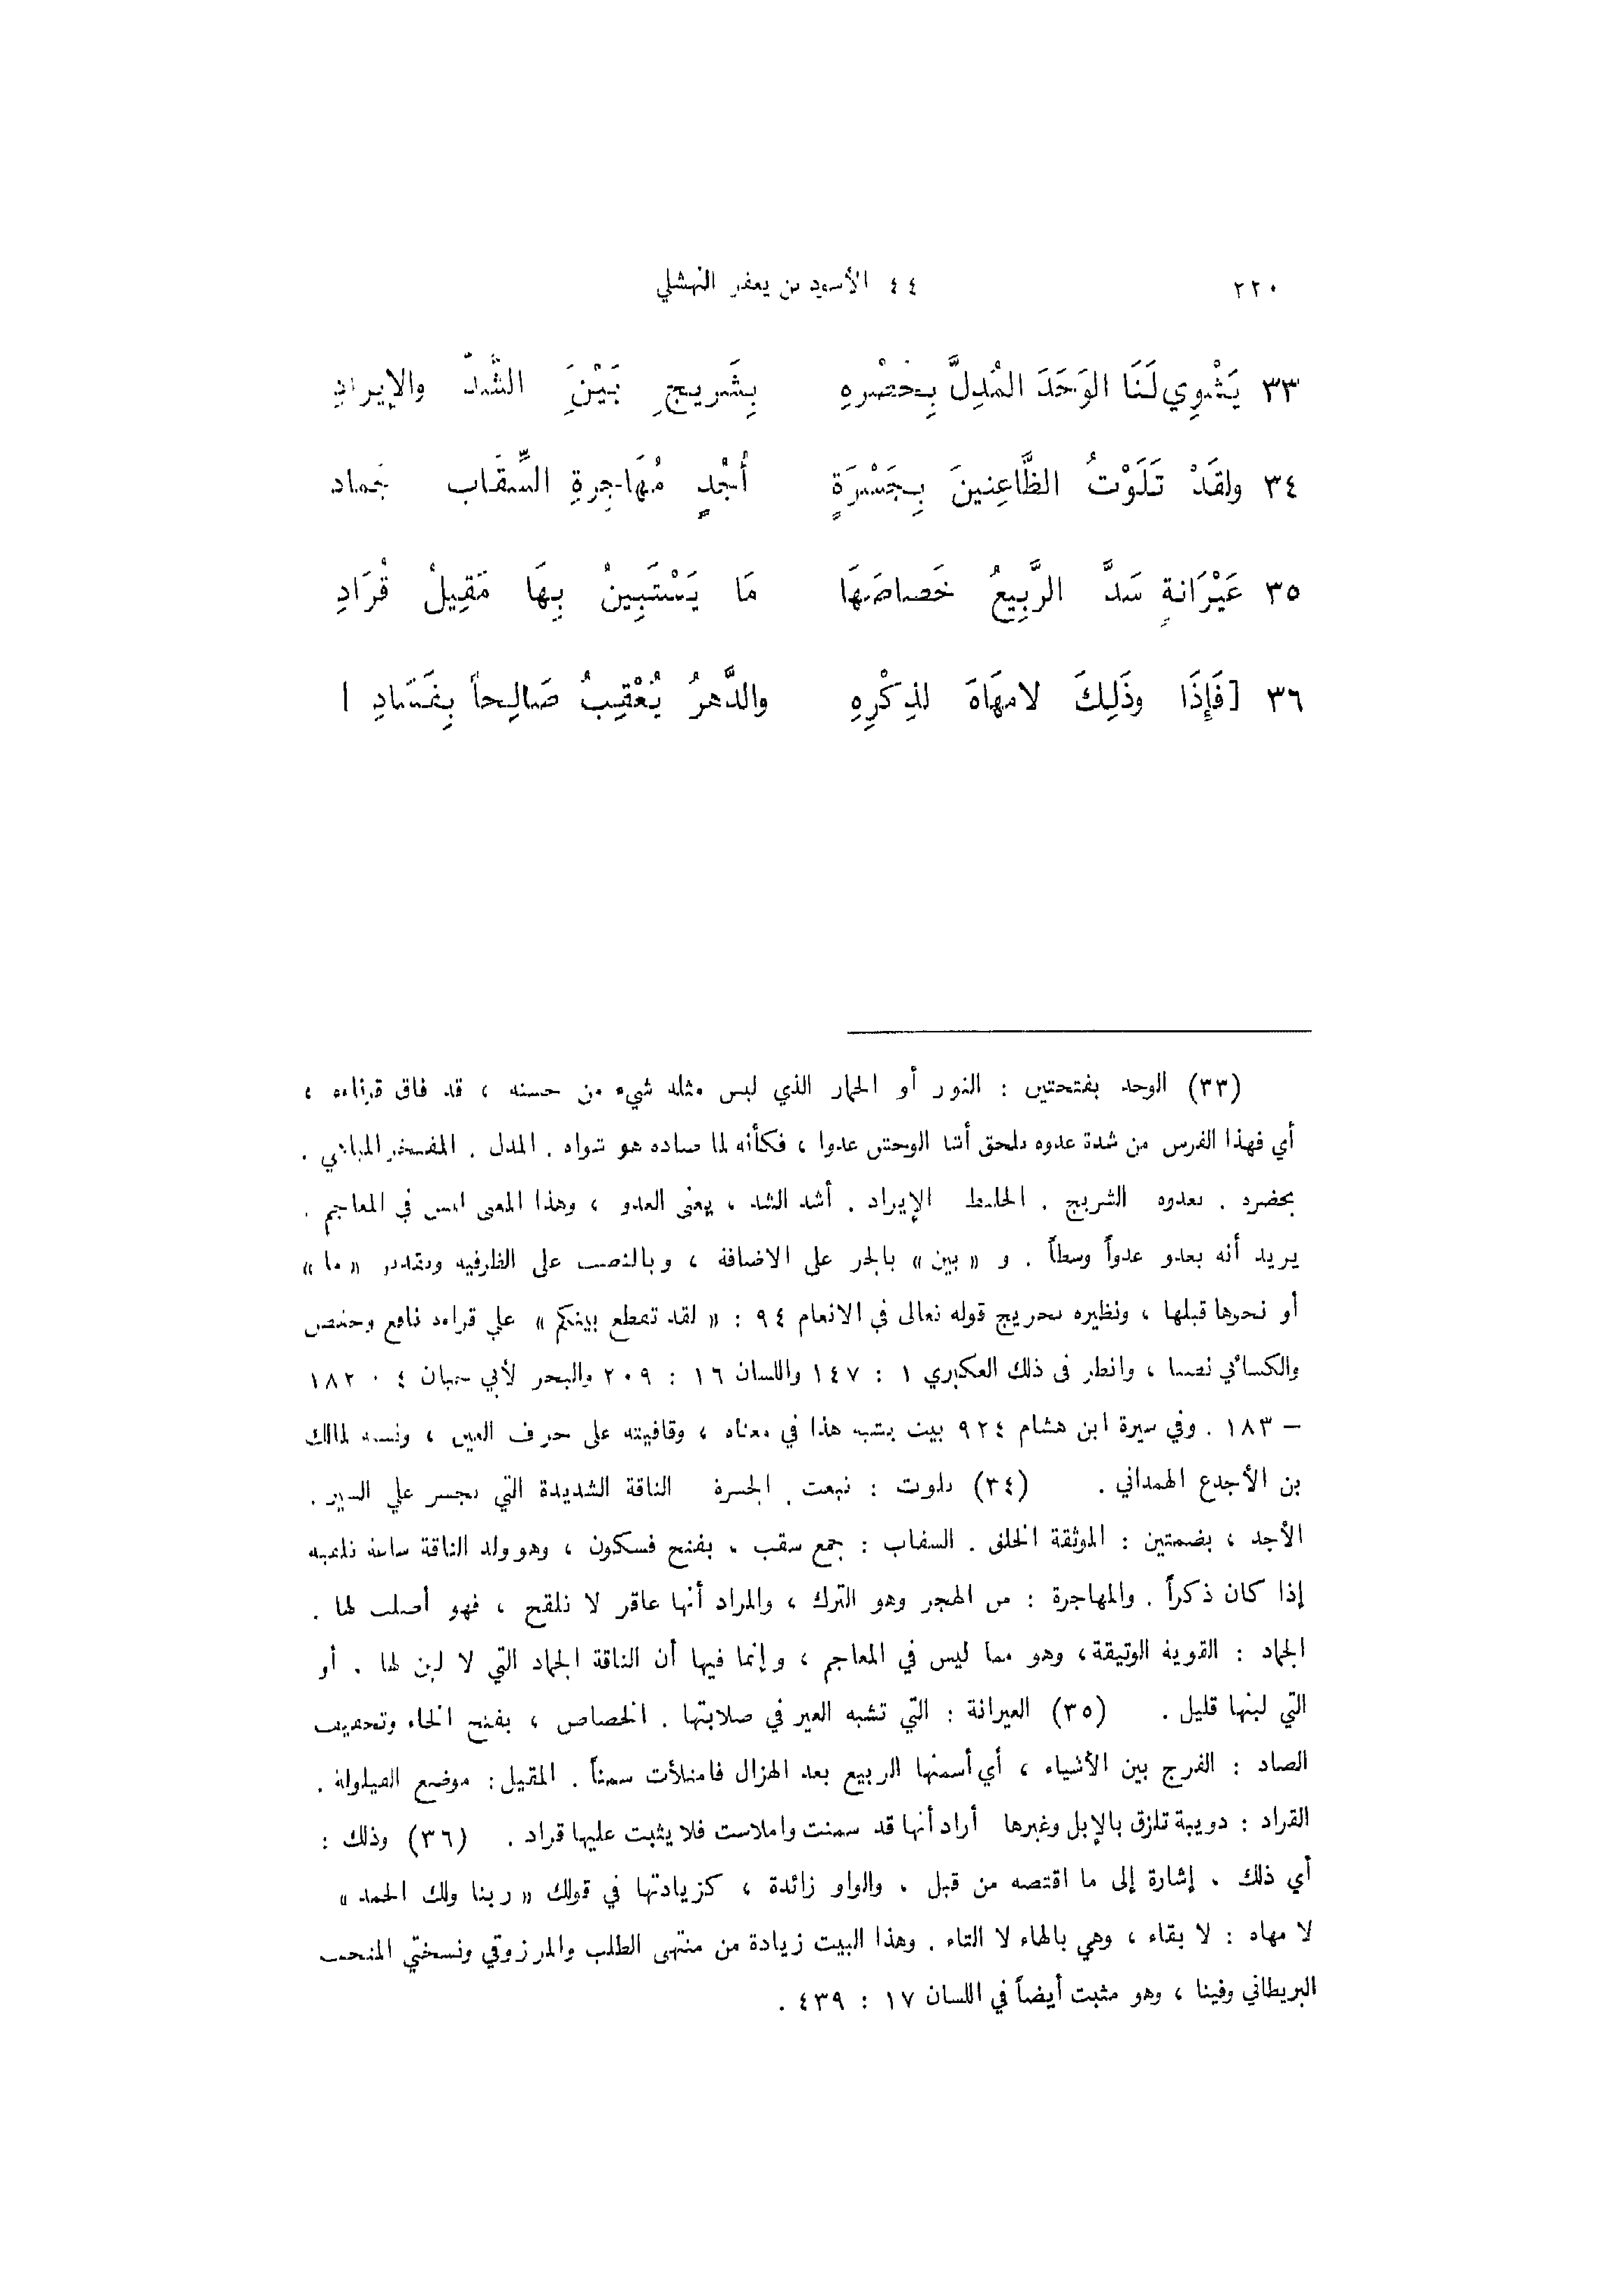 ٢٢٠
٤٤ الأسود بن يعفر النهشلي
٣٣ يَشْوِي لَنَا الوَحَدَ المُدِلَّ بِحُضْرِهِ بِشَرِيجِ بَيْنَِ الشَّدِّ والإيرادِ
٣٤ ولقَدْ تَلَوْتُ الظَّاعِنينَ بِجَسْرَةٍ أُجُدٍ مُهَاجِرةِ السِّقَابِ جَماد
٣٥ عَيْرَانةٍ سَدَّ الرَّبِيعُ خَصاصَهَا مَا يَسْتَبِينُ بِهَا مَقِيلُ قُرَادِ
٣٦ [فَإِذَا وذَلِكَ لامهَاهَ لذِكْرِهِ والدَّهرُ يُعْقِبُ صَالِحاً بِفَسَادِ]
(٣٣) الوحد بفتحتين : الثور أو الحمار الذي ليس مثله شيء من حسنه ، قد فاق قرناءه ،
أي فهذا الفرس من شدة عدوه يلحق أشد الوحش عدوا ، فكأنه لما صاده هو شواه . المدل . المفتخر المباهي .
بحضره . بعدوه الشريج . الخليط الإيراد . أشد الشد ، يعني العدو ، وهذا المعنى ليس في المعاجم .
يريد أنه يعدو عدواً وسطاً . و « بين » بالجر على الاضافة ، وبالنصب على الظرفية وتقدير « ما »
أو نحوها قبلها ، ونظيره تخريج قوله تعالى في الانعام ٩٤ : « لقد تقطع بينكم » على قراءة نافع وحفص
والكسائي نصبا ، وانظر في ذلك العكبري ١ : ١٤٧ واللسان ١٦ : ٢٠٩ والبحر لأبي حيان ٤ : ١٨٢
— ١٨٣ . وفي سيرة ابن هشام ٩٢٤ بيت يشبه هذا في معناه ، وقافيته على حرف العين ، ونسبه لمالك
بن الأجدع الهمداني . (٣٤) تلوت : تبعت . الجسرة الناقة الشديدة التي تجسر على السير .
الأجد ، بضمتين : الموثقة الخلق . السقاب : جمع سقب ، بفتح فسكون ، وهو ولد الناقة ساعة تلقيه
إذا كان ذكراً . والمهاجرة : من الهجر وهو الترك ، والمراد أنها عاقر لا تلقح ، فهو أصلب لها .
الجماد : القوية الوثيقة ، وهو مما ليس في المعاجم ، وإنما فيها أن الناقة الجماد التي لا لبن لها . أو
التي لبنها قليل . (٣٥) العيرانة : التي تشبه العير في صلابتها . الخصاص ، بفتح الخاء وتخفيف
الصاد : الفرج بين الأشياء ، أي أسمنها الربيع بعد الهزال فامتلأت سمناً . المقيل : موضع القيلولة .
القراد : دويبة تلزق بالإبل وغيرها أراد أنها قد سمنت واملاست فلا يثبت عليها قراد . (٣٦) وذلك :
أي ذلك . إشارة إلى ما اقتصه من قبل . والواو زائدة ، كزيادتها في قولك « ربنا ولك الحمد »
لا مهاه : لا بقاء ، وهي بالهاء لا التاء . وهذا البيت زيادة من منتهى الطلب والمرزوقي ونسختي المتحف
البريطاني وفينا ، وهو مثبت أيضاً في اللسان ١٧ : ٤٣٩ .